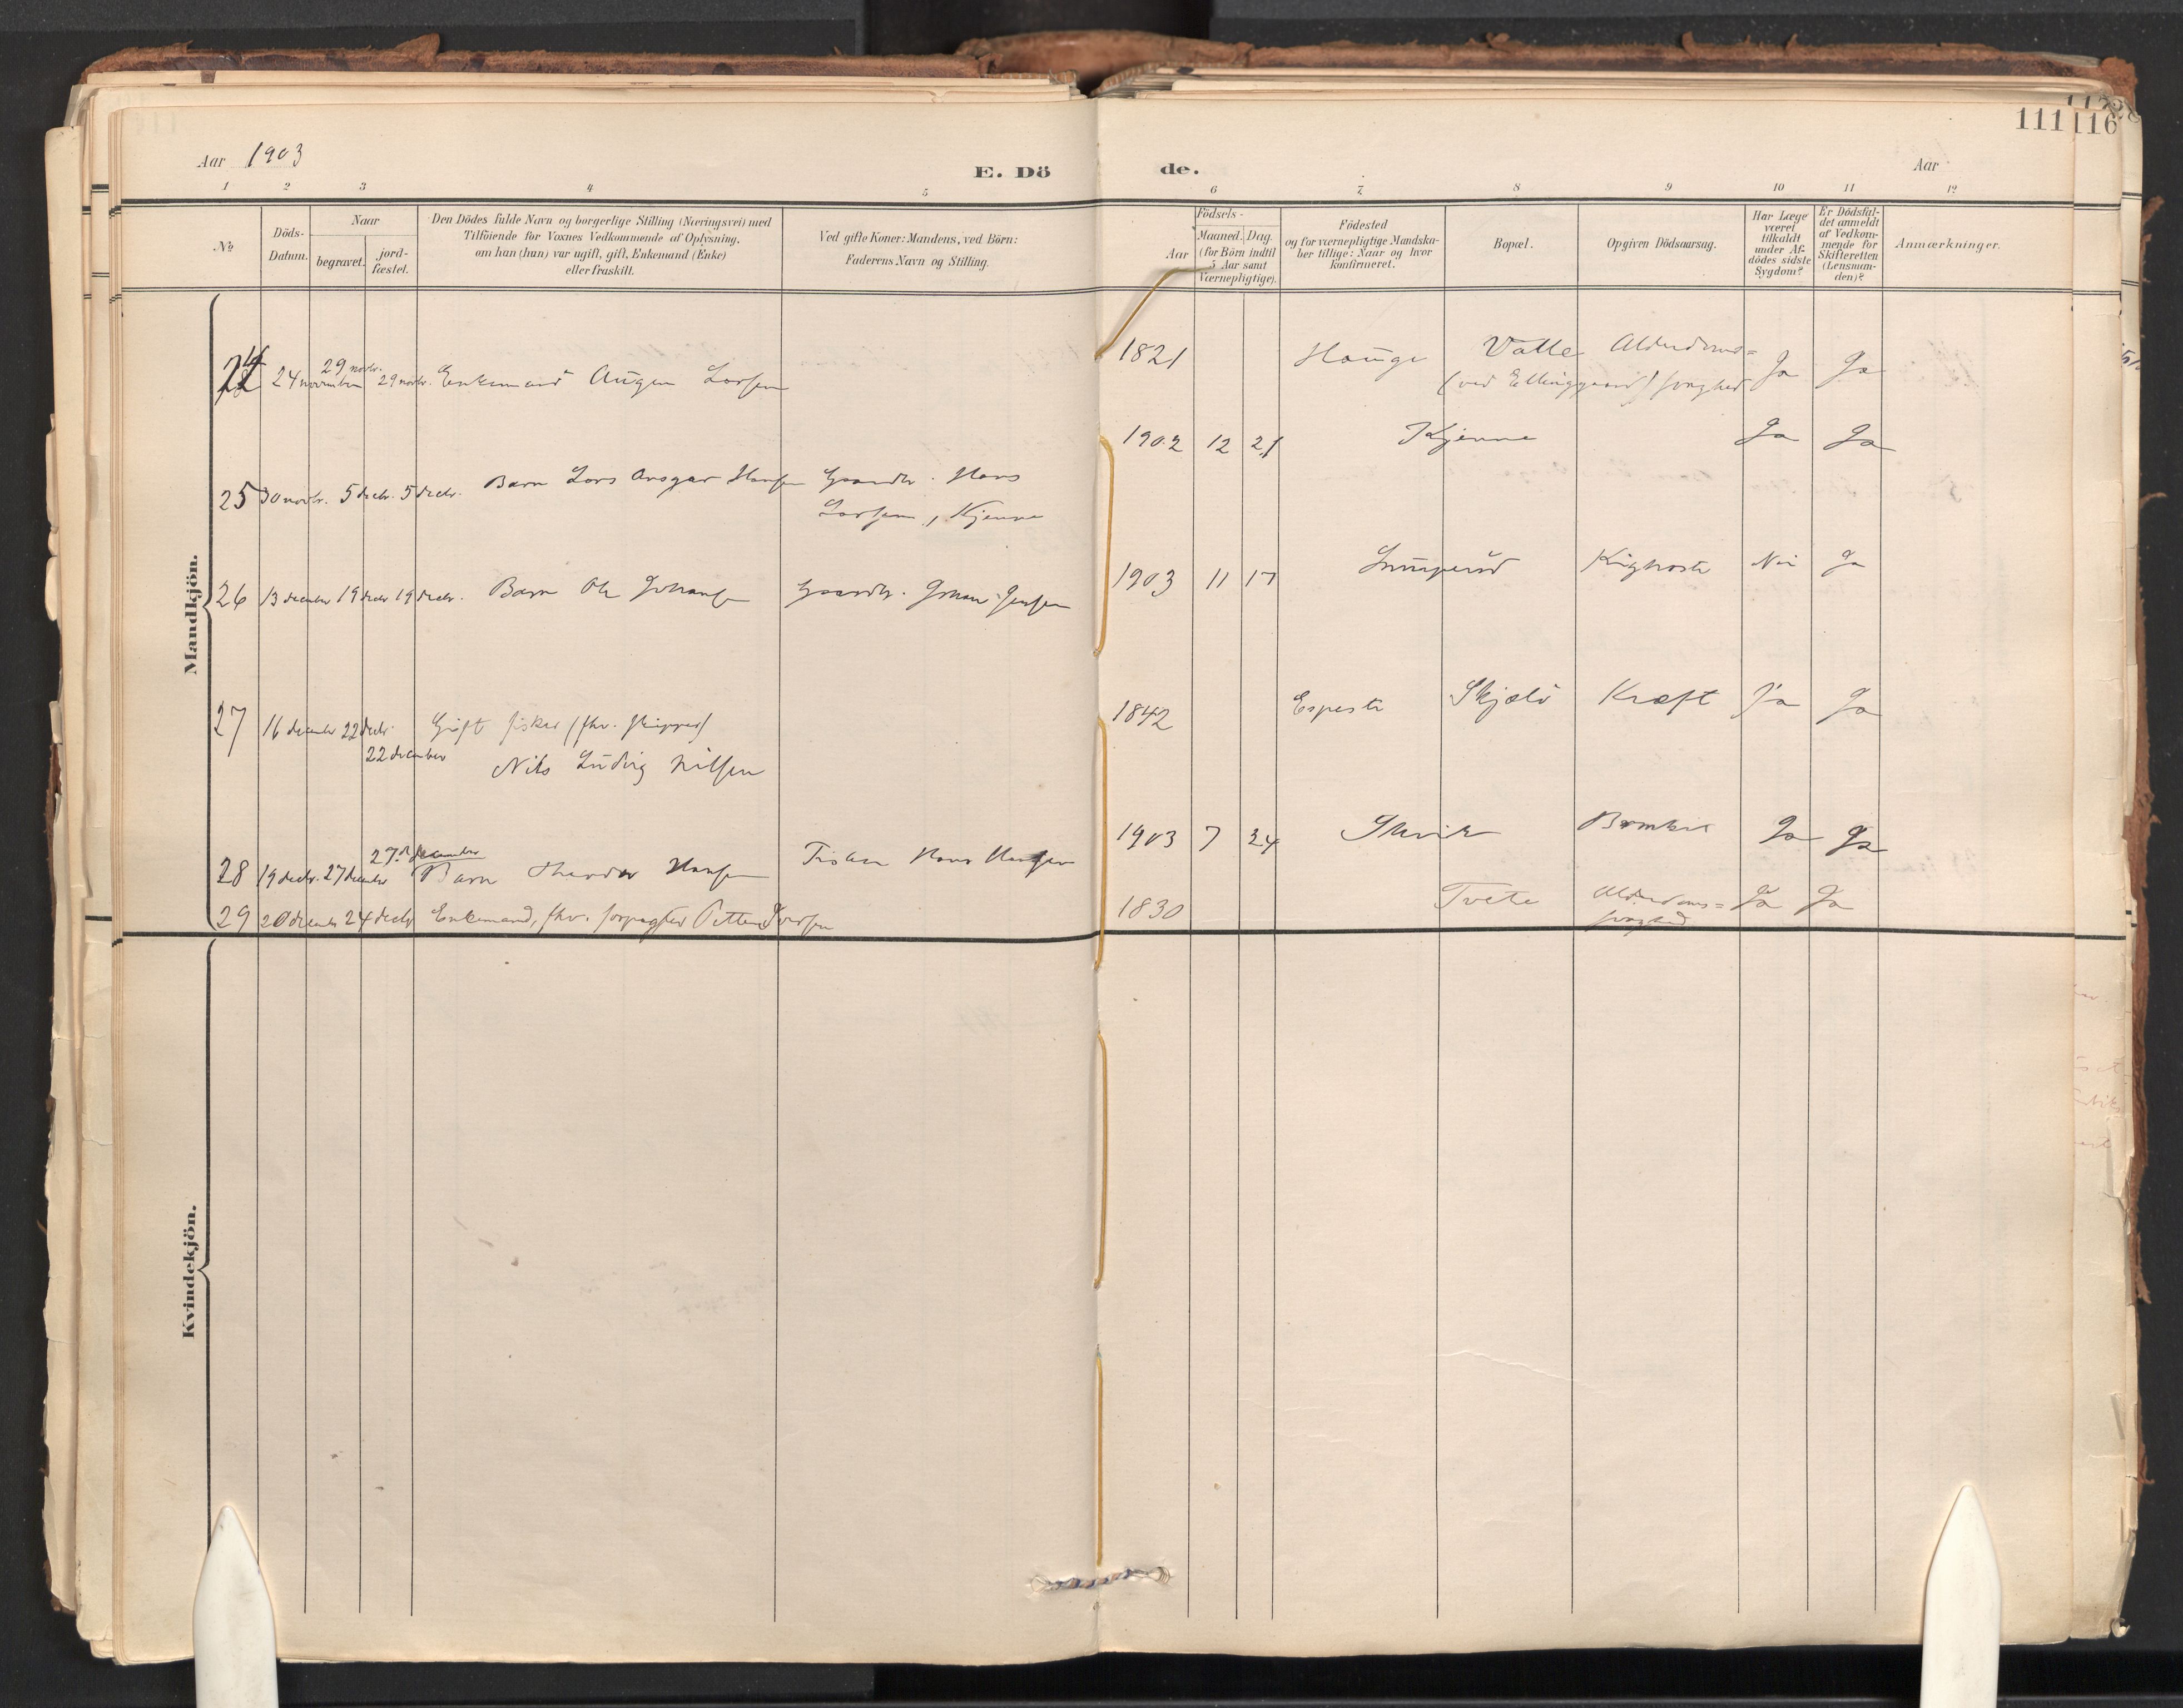 111 116
Aar 1903
E. Dö de.
Aar
1 2 3 4 5 6 7 8 9 10 11 12
№
Döds-
Datum.
Naar
begravet.
jord-
fæstet.
Den Dödes fulde Navn og borgerlige Stilling (Næringsvei) med
Tilföiende for Voxnes Vedkommende af Oplysning,
om han (hun) var ugift, gift, Enkemand (Enke)
eller fraskilt.
Ved gifte Koner: Mandens, ved Börn:
Faderens Navn og Stilling.
Födsels-
Aar
Maaned. Dag.
(for Börn indtil
5 Aar samt
Værnepligtige).
Födested
og for værnepligtige Mandska-
ber tillige: Naar og hvor
konfirmeret.
Bopæl.
Opgiven Dödsaarsag.
Har Læge
været
tilkaldt
under Af-
dödes sidste
Sygdom?
Er Dödsfal-
det anmeldt
af Vedkom-
mende for
Skifteretten
(Lensman-
den)?
Anmærkninger.
Mandkjön.
24 24 november 29 novbr. 29 novbr. Enkemand Augen Larsen 1821 Hauge Valle Alderdoms=
(ved Ellinggaard) svaghed Ja Ja
25 30 novbr. 5 decbr. 5 decbr. Barn Lars Ansgar Hansen Gaardbr. Hans
Larsen, Kjenne 1902 12 21 Kjenne Ja Ja
26 13 december 19 decbr 19 decbr. Barn Ole Johansen Gaardbr. Johan Jensen 1903 11 17 Kighoste Nei Ja
27 16 december 22 decbr. Gift fisker (fhv. skipper)
22 december Nils Ludvig Nilsen 1842 Skjælö Kræft Ja Ja
27 december
28 19 decbr. 27 december Barn Hansen Fisker Hans Hansen 1903 7 24 Ja Ja
29 20 december 24 decbr Enkemand, fhv. forpagter Petter Iversen 1830 Tvete Alderdoms=
svaghed Ja Ja
Kvindekjön.